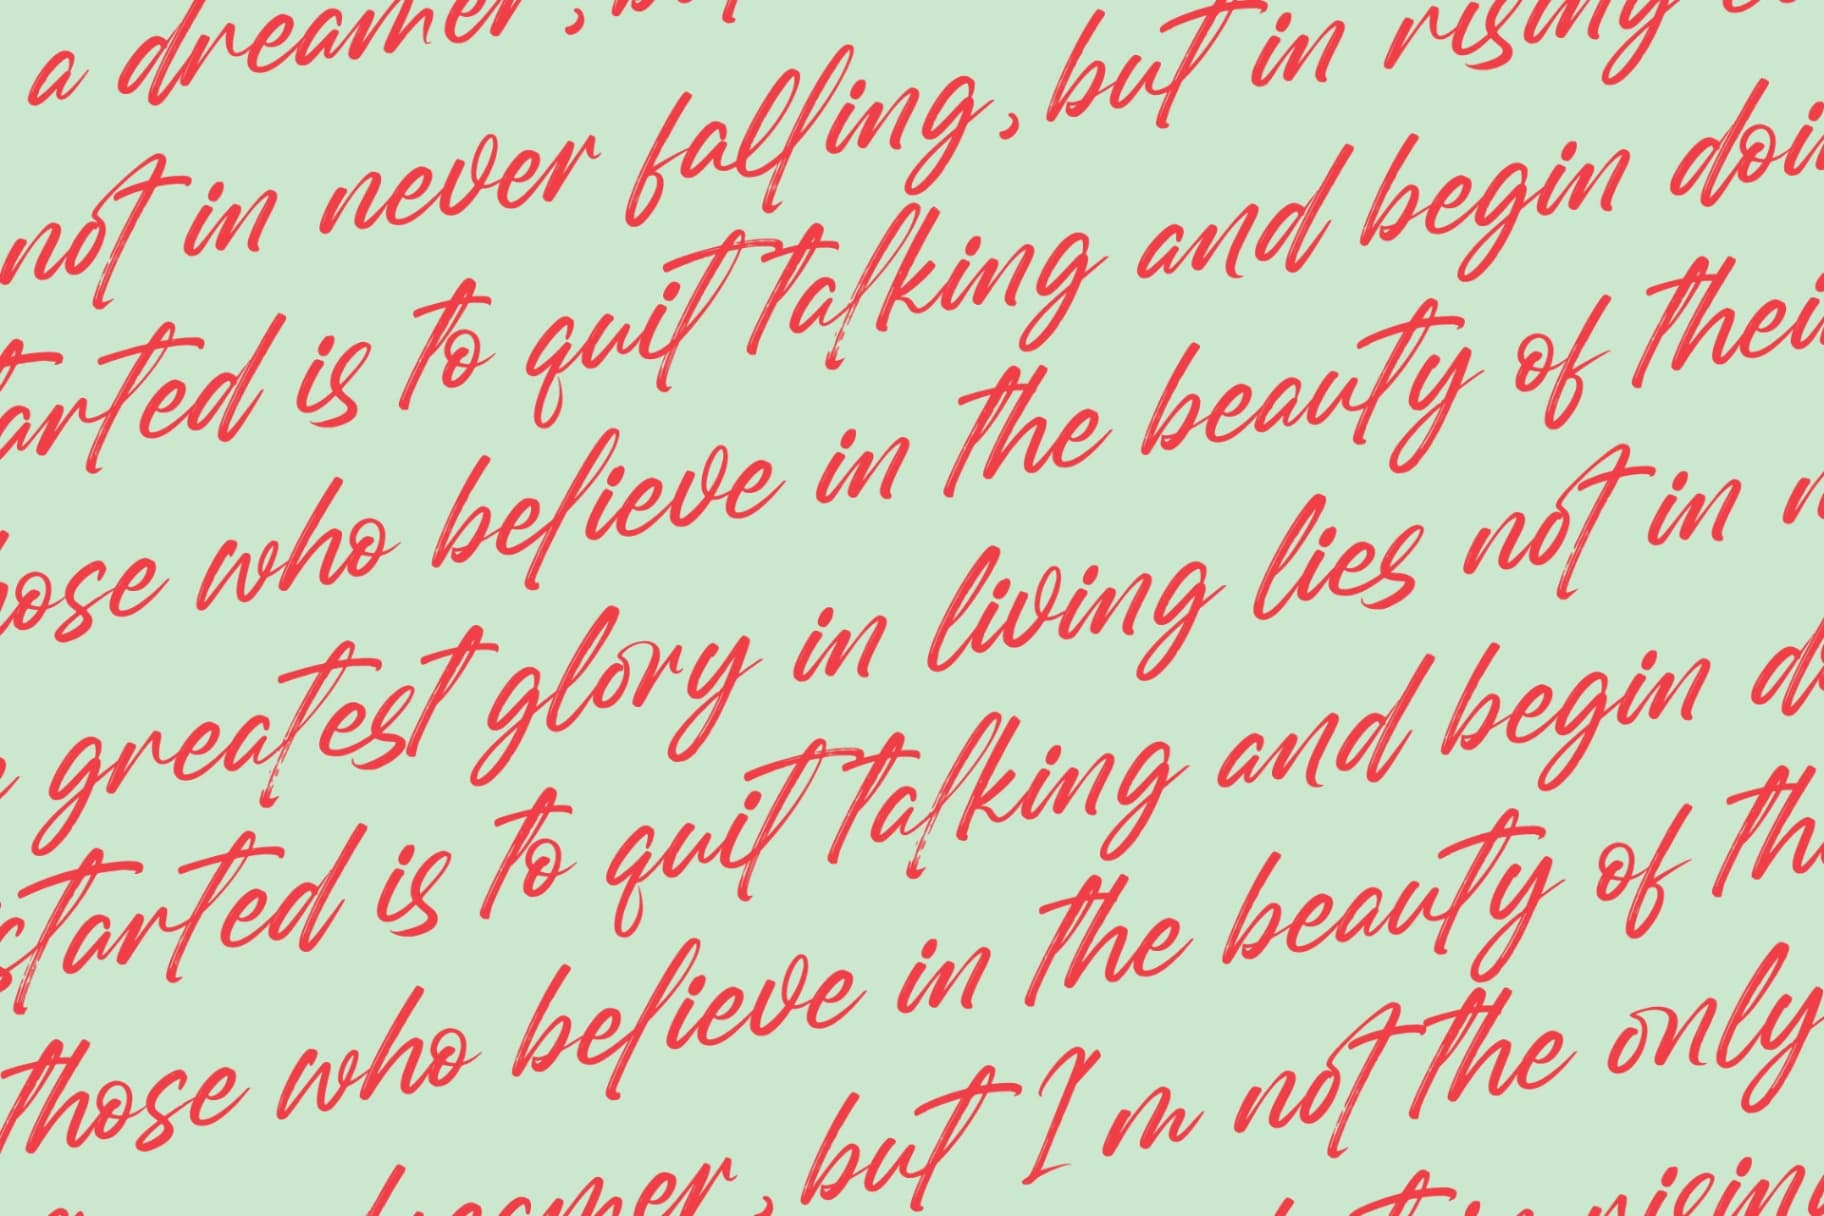 a dreamer, but
not in never falling, but in rising
tarted is to quit talking and begin doi
hose who believe in the beauty of their
greatest glory in living lies not in n
started is to quit talking and begin d
those who believe in the beauty of th
dreamer, but I m not the only
rising